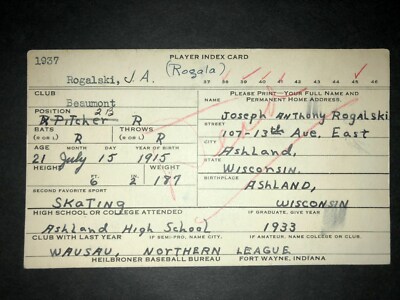 1937
PLAYER INDEX CARD
Rogalski, J.A. (Rogala)
CLUB
Beaumont
PLEASE PRINT—YOUR FULL NAME AND
PERMANENT HOME ADDRESS.
POSITION 2B
R Pitcher R
Joseph Anthony Rogalski
BATS THROWS
(R OR L) R (R OR L) R
STREET
107-13th Ave. East
AGE MONTH DAY YEAR OF BIRTH
CITY
21 July 15 1915
Ashland,
STATE
HEIGHT WEIGHT
Wisconsin.
FT. 6 IN. 2 187
BIRTHPLACE
ASHLAND,
SECOND FAVORITE SPORT
SKATING
WISCONSIN
HIGH SCHOOL OR COLLEGE ATTENDED IF GRADUATE, GIVE YEAR
Ashland High School 1933
CLUB WITH LAST YEAR IF SEMI-PRO, NAME CITY. IF AMATEUR, NAME COLLEGE OR CLUB.
WAUSAU, NORTHERN LEAGUE
HEILBRONER BASEBALL BUREAU FORT WAYNE, INDIANA